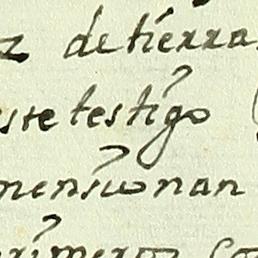 z de tierra
este testigo
mensionan
primeros co